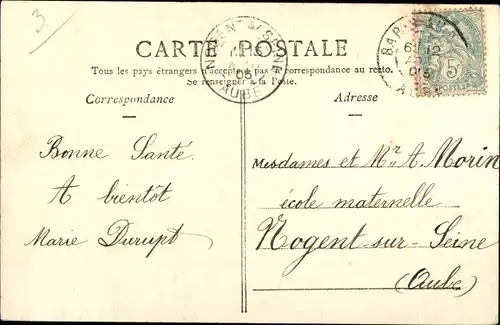 3
CARTE POSTALE
Tous les pays étrangers n'acceptent pas la correspondance au recto.
Se renseigner à la Poste.
Correspondance
Adresse
Bonne Santé.
A bientôt
Marie Durupt
Mesdames et Mr A. Morin
école maternelle
Nogent-sur-Seine
(Aube)
NOGENT S/SEINE
05
AUBE
BAR
12
05
5
POSTES